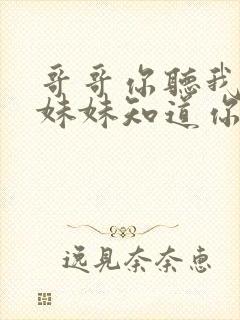 哥哥你聽我
妹妹知道你
逸見奈奈惠